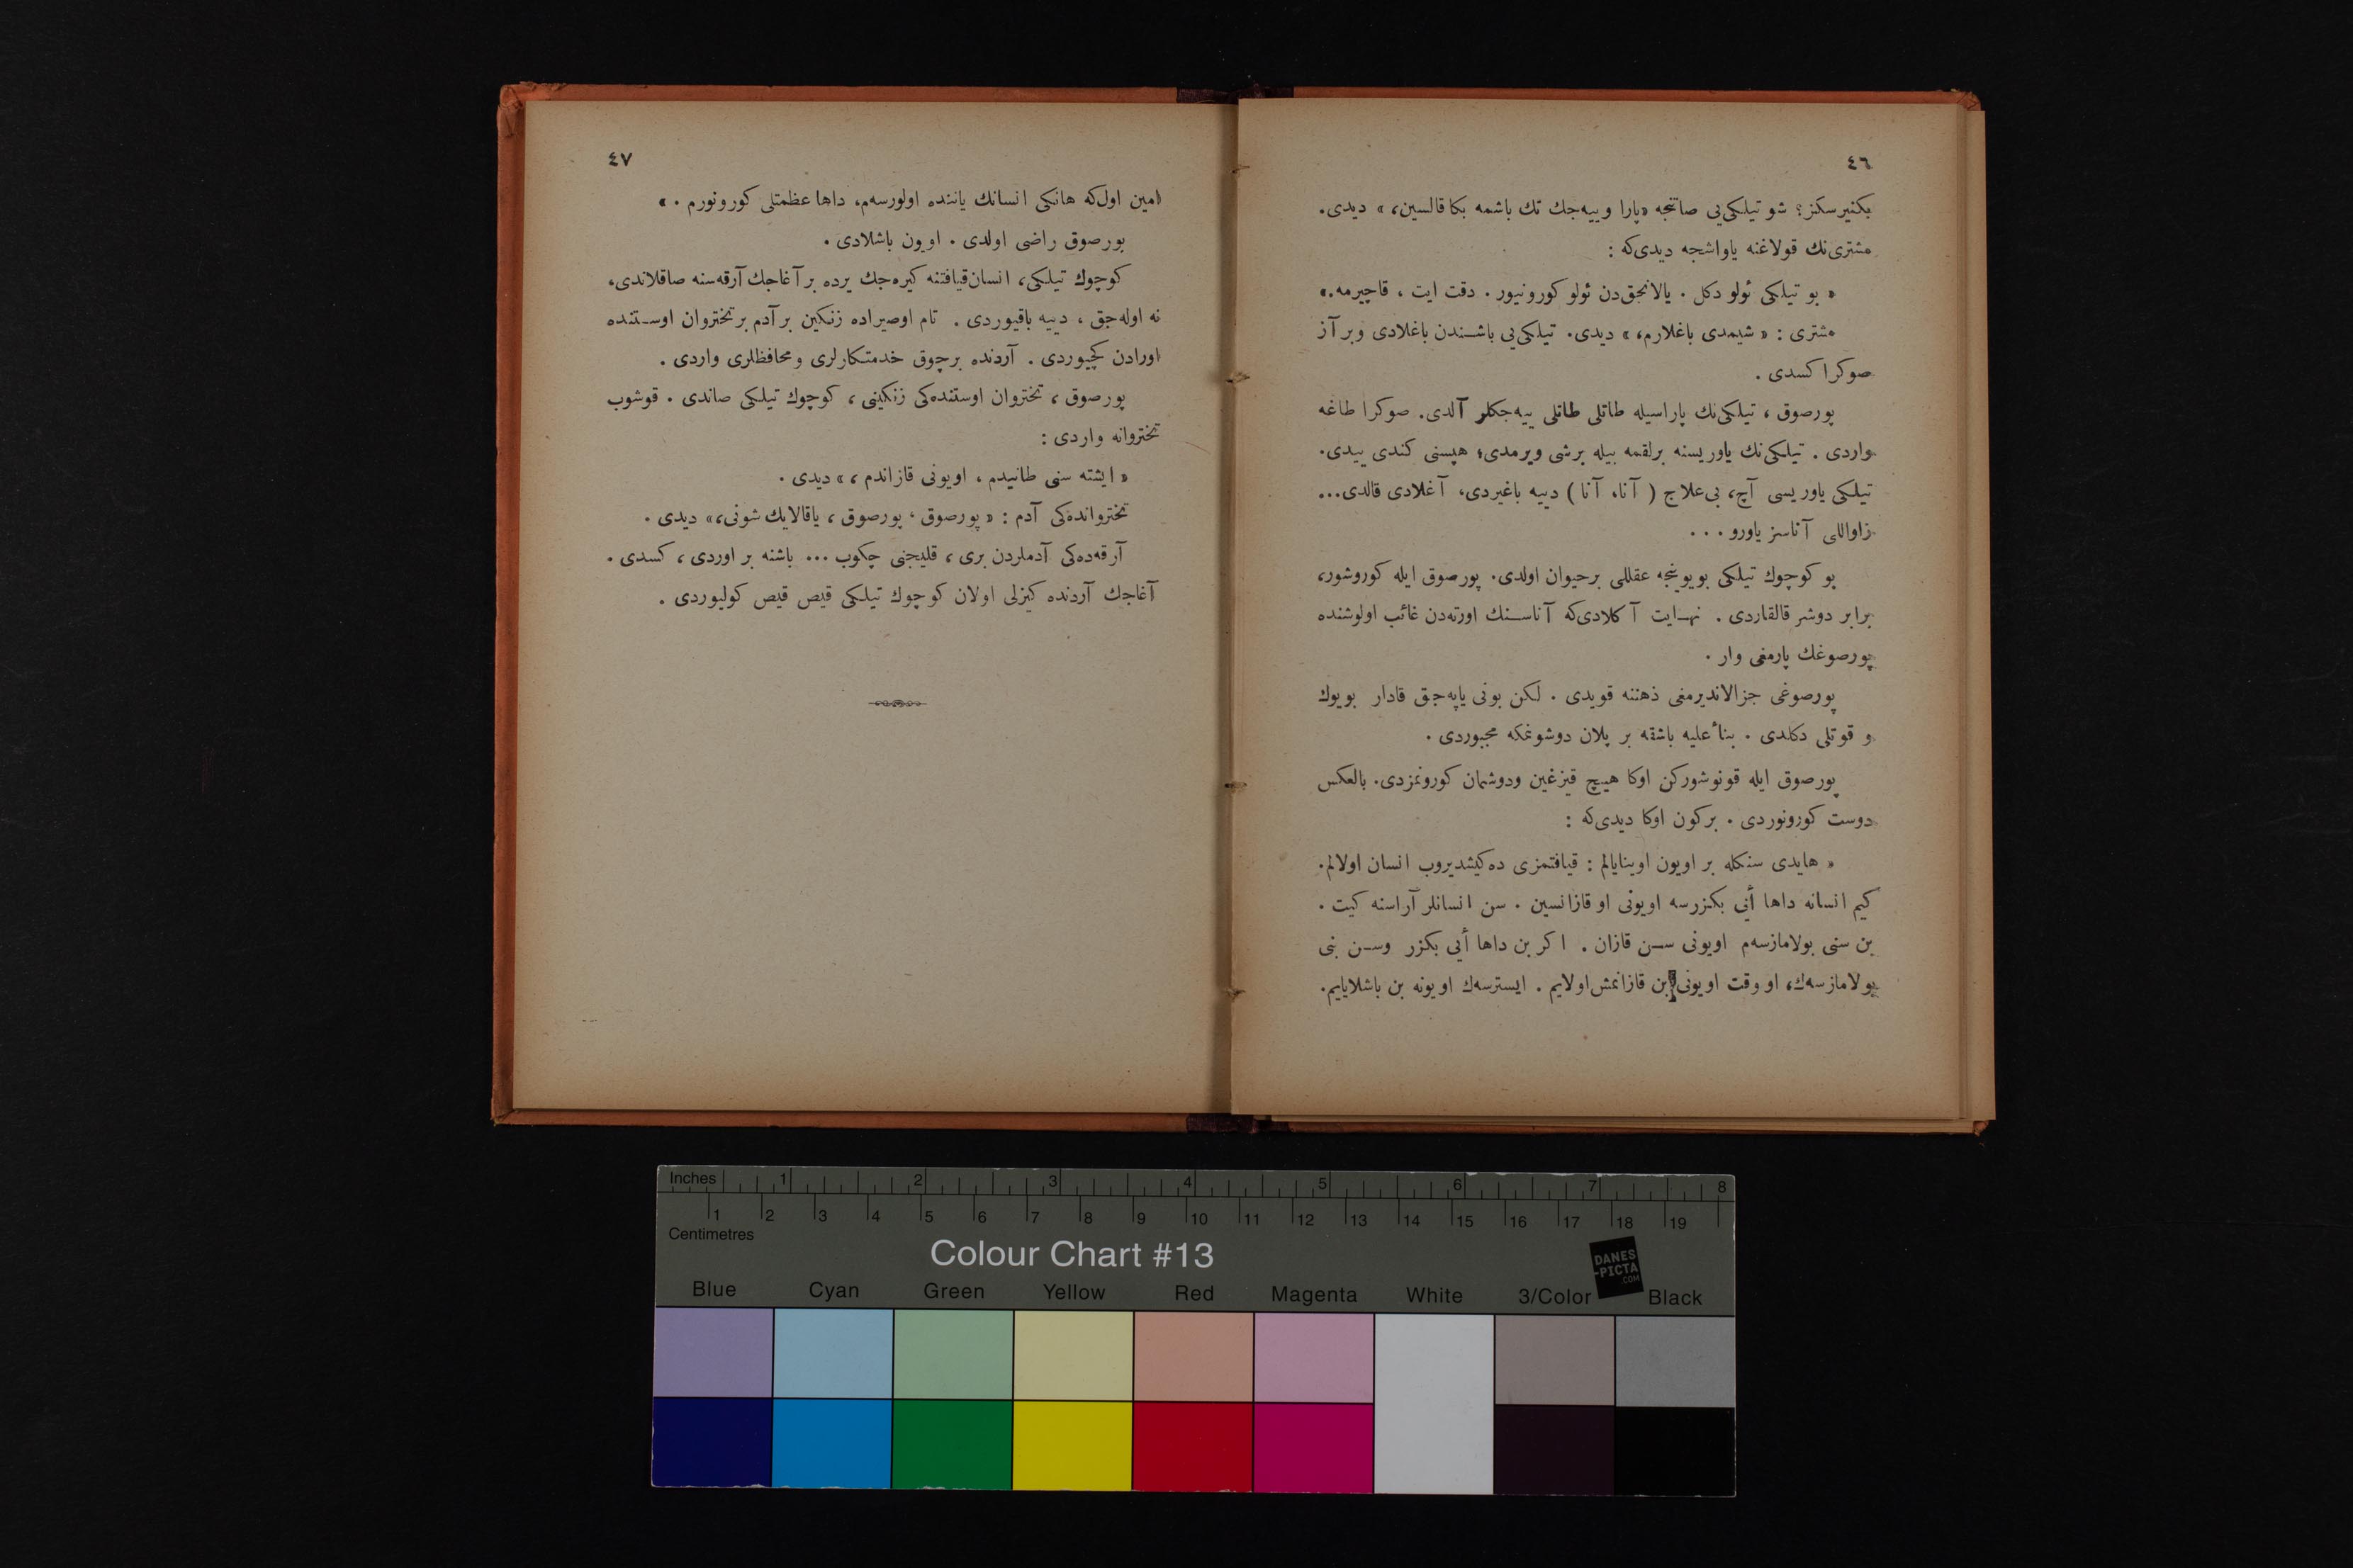 ٤٦
بكنیرسكز؟ شو تیلكی‌یی صاتنجه «پارا وییه‌جك تك باشمه بكا قالسین،» دیدی.
مشتری‌نك قولاغنه یاواشجه دیدی‌كه :
« بو تیلكی ئولو دكل . یالانجق‌دن ئولو كورونیور . دقت ایت ، قاچیرمه.»
مشتری : « شیمدی باغلارم،» دیدی. تیلكی‌یی باشـندن باغلادی وبر آز
صوكرا كسدی .
پورصوق ، تیلكی‌نك پاراسیله طاتلی طاتلی ییه‌جكلر آلدی. صوكرا طاغه
واردی . تیلكی‌نك یاوریسنه برلقمه بیله برشی ویرمدی؛ هپسنی كندی ییدی.
تیلكی یاوریسی آچ، بی‌علاج ( آنا، آنا ) دییه باغیردی، آغلادی قالدی...
زاواللی آناسز یاورو ...
بو كوچوك تیلكی بویونجه عقللی برحیوان اولدی. پورصوق ایله كوروشور،
برابر دوشر قالقاردی . نهـایت آ كلادی‌كه آناسـنك اورته‌دن غائب اولوشنده
پورصوغك پارمغی وار .
پورصوغی جزالاندیرمغی ذهننه قویدی . لكن بونی یاپه‌جق قادار بویوك
و قوتلی دكلدی . بناءً علیه باشقه بر پلان دوشونمكه مجبوردی .
پورصوق ایله قونوشوركن اوكا هیچ قیزغین ودوشمان كورونمزدی. بالعكس
دوست كورونوردی . بركون اوكا دیدی‌كه :
« هایدی سنكله بر اویون اوینایالم : قیافتمزی ده‌كیشدیروب انسان اولالم.
كیم انسانه داها أیی بكزرسه اویونی او قازانسین . سن انسانلر آراسنه كیت .
بن سنی بولامازسه‌م اویونی سـن قازان . اكر بن داها أیی بكزر وسـن بنی
بولامازسه‌ك، او وقت اویونی بن قازانمش‌اولایم . ایسترسه‌ك اویونه بن باشلاییم.
٤٧
امین اول‌كه هانكی انسانك یاننده اولورسه‌م، داها عظمتلی كورونورم . »
بورصوق راضی اولدی . اویون باشلادی .
كوچوك تیلكی، انسان‌قیافتنه كیره‌جك یرده بر آغاجك آرقه‌سنه صاقلاندی،
نه اوله‌جق ، دییه باقیوردی . تام اوصیراده زنكین بر آدم بر تختروان اوسـتنده
اورادن كچیوردی . آردنده برچوق خدمتكارلری ومحافظلری واردی .
پورصوق ، تختروان اوستنده‌كی زنكینی ، كوچوك تیلكی صاندی . قوشوب
تختروانه واردی :
« ایشته سنی طانیدم ، اویونی قازاندم ،» دیدی .
تختروانده‌كی آدم : « پورصوق ، پورصوق ، یاقالایك شونی،» دیدی .
آرقه‌ده‌كی آدملردن بری ، قلیجنی چكوب ... باشنه بر اوردی ، كسدی .
آغاجك آردنده كیزلی اولان كوچوك تیلكی قیص قیص كولیوردی .
Inches 1 2 3 4 5 6 7 8
1 2 3 4 5 6 7 8 9 10 11 12 13 14 15 16 17 18 19
Centimetres
Colour Chart #13
DANES
-PICTA
.COM
Blue Cyan Green Yellow Red Magenta White 3/Color Black